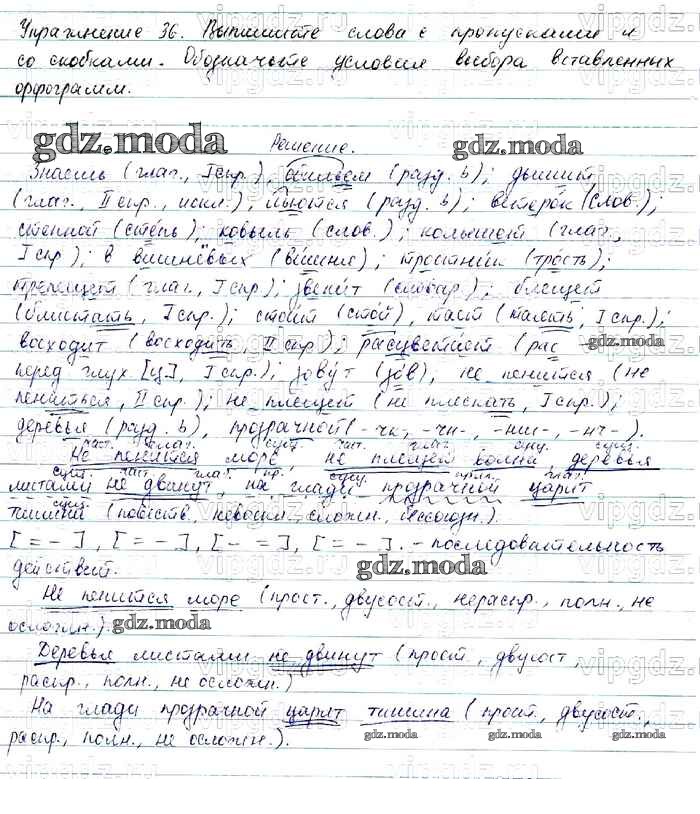 Упражнение 36. Выпишите слова с пропусками и
со скобками. Обозначьте условия выбора вставленных
орфограмм.
gdz.moda Решение. gdz.moda
Знаешь (глаг., I спр.), (разд. ь); дышит
(глаг., II спр., искл.); льются (разд. ь); ветерок (слов.);
степной (степь); ковыль (слов.); колышет (глаг.,
I спр); в вишнёвых (вишня); тростник (трость);
трепещет (глаг., I спр); звенит (словар.); блещет
(блистать, I спр.); стоит (стой), тает (таять, I спр.);
восходит (восходить, II спр.); расцветает (рас – gdz.moda
перед глух [ц], I спр.); зовут (зов), не пенится (не
пениться, II спр.); не плещет (не плескать, I спр.);
деревья (разд. ь), прозрачной (-чк-, -чн-, -нч-, -нщ-).
част. глаг. сущ. част. глаг. сущ. сущ.
Не пенится море, не плещет волна, деревья
сущ. част. глаг. пр. сущ. прил. глаг.
листами не двинут, на глади прозрачной царит
сущ.
тишина (повеств., невоскл., сложн., бессоюзн.).
[= –], [= –], [– =], [= –]. – последовательность
действий. gdz.moda
Не пенится море (прост., двусост., нераспр., полн., не
осложн.). gdz.moda
Деревья листами не двинут (прост., двусост.,
распр., полн., не осложн.)
На глади прозрачной царит тишина (прост., двусост.,
распр., полн., не осложн.). gdz.moda gdz.moda